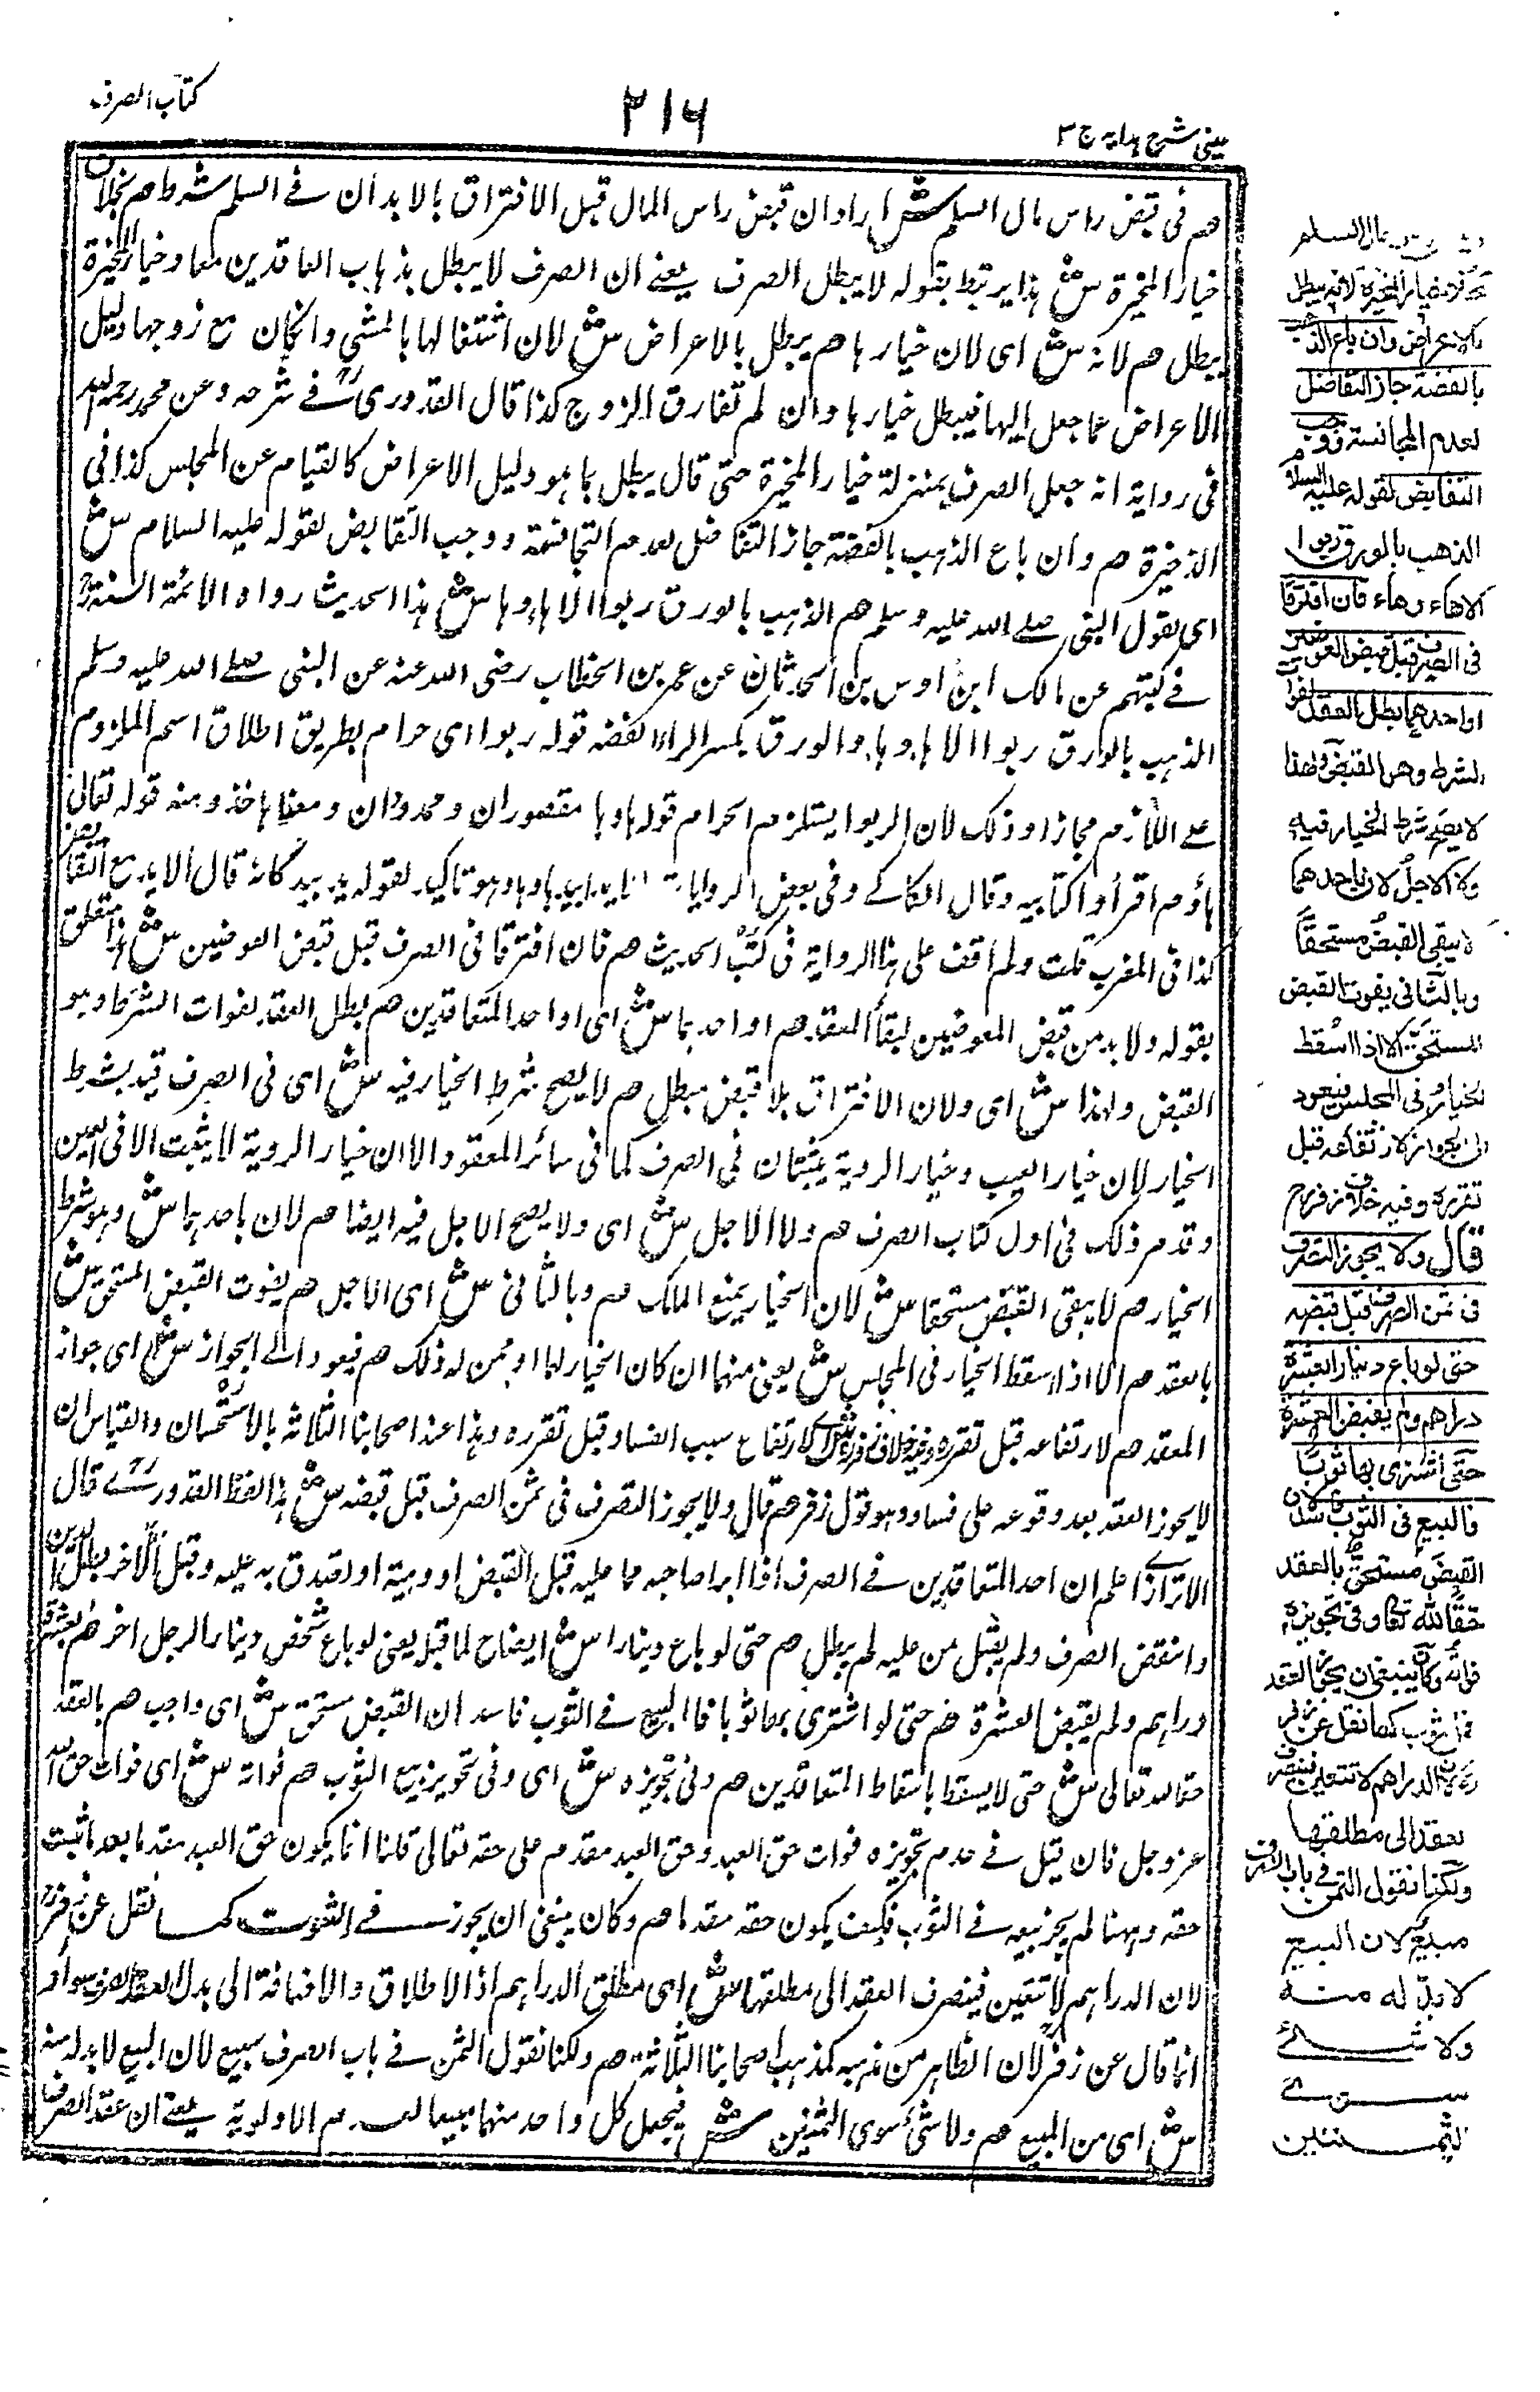 كتاب الصرف
٢١٦
عينى شرح هدايه ج ٣
هم فى قبض راس مال السلم ش اراد ان قبض راس المال قبل الافتراق بالابدان فے السلم شرط هم بخلاف
خيار المخيرة ش هذا يرتبط بقوله لا يبطل الصرف يعنے ان الصرف لا يبطل بذهاب العاقدين معا وخيار المخيرة
يبطل هم لانه ش اى لان خيارها هم يبطل بالاعراض ش لان اشتغالها بالمشى وان كان مع زوجها دليل
الاعراض عما جعل اليها فيبطل خيارها وان لم تفارق الزوج كذا قال القدورى فے شرحه وعن محمد رحمه الله
فى رواية انه جعل الصرف بمنزلة خيار المخيرة حتى قال يبطل بما هو دليل الاعراض كالقيام عن المجلس كذا فى
الذخيرة هم وان باع الذهب بالفضة جاز التفاضل لعدم التجانسة ووجب التقابض لقوله عليه السلام ش
اى لقول النبى صلے الله عليه وسلم هم الذهب بالورق ربوا الا هاء وها ش هذا الحديث رواه الائمة الستة
فے كتبهم عن مالك ابن اوس بن الحدثان عن عمر بن الخطاب رضى الله عنه عن النبى صلے الله عليه وسلم
الذهب بالورق ربوا الا هاء وهاء والورق بكسر الراء الفضة قوله ربوا اى حرام بطريق اطلاق اسم الملزوم
علے اللازم مجازا وذلك لان الربوا يستلزم الحرام قوله ها وها مقصوران وممدودان ومعناها خذ ومنه قوله تعالى
هاؤم اقرأوا كتابيه وقال الكاكے وفى بعض الروايات يدا بيد ها وها وهو تاكيد لقوله يد بيد كانه قال الا بيد مع التقابض
كذا فى المغرب قلت ولم اقف على هذا الرواية فى كتب الحديث هم فان افترقا فى الصرف قبل قبض العوضين ش هذا متعلق
بقوله ولا بد من قبض العوضين لبقأ العقد هم او احدهما ش اى او احد المتعاقدين هم بطل العقد لفوات الشرط وهو
القبض ولهذا ش اى ولان الافتراق بلا قبض مبطل هم لا يصح شرط الخيار فيه ش اى فى الصرف قيد بشرط
الخيار لان خيار العيب وخيار الروية يثبتان فى الصرف كما فى سائر العقود الا ان خيار الروية لا يثبت الا فى العين
وقد مر ذلك فى اول كتاب الصرف هم ولا الاجل ش اى ولا يصح الاجل فيه ايضا هم لان باحدهما ش وهو شرط
الخيار هم لا يبقى القبض مستحقا ش لان الخيار يمنع الملك هم وبالثانى ش اى الاجل هم يفوت القبض المستحق ش
بالعقد هم الا اذا اسقط الخيار فى المجلس ش يعنى منهما ان كان الخيار لهما او ممن له ذلك هم فيعود الے الجواز ش اى جواز
العقد هم لارتفاعه قبل تقرره وفيه خلاف زفر ش اے لارتفاع سبب الفساد قبل تقرره وهذا عند اصحابنا الثلاثه بالاستحسان والقياس ان
لا يحوز العقد بعد وقوعه على فساد وهو قول زفر هم قال ولا يجوز التصرف فى ثمن الصرف قبل قبضه ش هذا لفظ القدورے قال
الاترازے اعلم ان احد المتعاقدين فے الصرف اذا ابرا صاحبه مما عليه قبل القبض او وهبة او تصدق به عليه وقبل الآخر بطل الدين
وانتقض الصرف ولم يقبل من عليه لم يبطل هم حتى لو باع دينارا ش ايضاح لما قبل يعنى لو باع شخص دينارا لرجل اخر هم بعشرة
دراهم ولم يقبض العشرة هم حتى لو اشترى بها ثوبا فالبيع فے الثوب فاسد ان القبض مستحق ش اى واجب هم بالعقد
حقا لله تعالى ش حتى لا يسقط باسقاط المتعاقدين هم وفى تجويزه ش اى وفى تحويز بيع الثوب هم فواته ش اى فوات حق الله
عزوجل فان قيل فے عدم تجويزه فوات حق العبد وحق العبد مقدم على حقه تعالى قلنا انما يكون حق العبد مقدما بعد ما ثبت
حقه وههنا لم يجز بيعه فے الثوب فكيف يكون حقه مقدما هم وكان ينبغى ان يجوز فے الثوب كما نقل عن زفر
لان الدراهم لا تتعين فينصرف العقد الى مطلقها ش اى مطلق الدراهم اذ الاطلاق والاضافة الى بدل العقد الصرف سواء
انما قال عن زفر لان الظاهر من مذهبه كمذهب اصحابنا الثلاثة هم ولكنا نقول الثمن فے باب الصرف مبيع لان البيع لا بد له منه
ش اى من المبيع هم ولا شئ سوى الثمنين ش فيجعل كل واحد منهما مبيعا لعدم الاولوية يعنے ان عقد الصرف
مال السلم
بخلاف خيار المخيرة لانه يبطل
بالاعراض وان باع الذهب
بالفضة جاز التفاضل
لعدم المجانسة ووجب
التقابض لقوله عليه السلام
الذهب بالورق ربوا
الا هاء وهاء فان افترقا
فى الصرف قبل قبض العوضين
او احدهما بطل العقد لفوات
الشرط وهو القبض ولهذا
لا يصح شرط الخيار فيه
ولا الاجل لان باحدهما
لا يبقى القبض مستحقا
وبالثانى يفوت القبض
المستحق الا اذا اسقط
الخيار فى المجلس فيعود
الى الجواز لارتفاعه قبل
تقرره وفيه خلاف زفر رح
قال ولا يجوز التصرف
فى ثمن الصرف قبل قبضه
حتى لو باع دينارا بعشرة
دراهم ولم يقبض العشرة
حتى اشترى بها ثوبا
فالبيع فى الثوب فاسد لان
القبض مستحق بالعقد
حقا لله تعالى وفى تجويزه
فواته وكان ينبغى ان يجوز العقد
فى الثوب كما نقل عن زفر
لان الدراهم لا تتعين فينصرف
العقد الى مطلقها
ولكنا نقول الثمن فى باب الصرف
مبيع لان البيع
لا بد له منه
ولا شئے
سوے
الثمنين